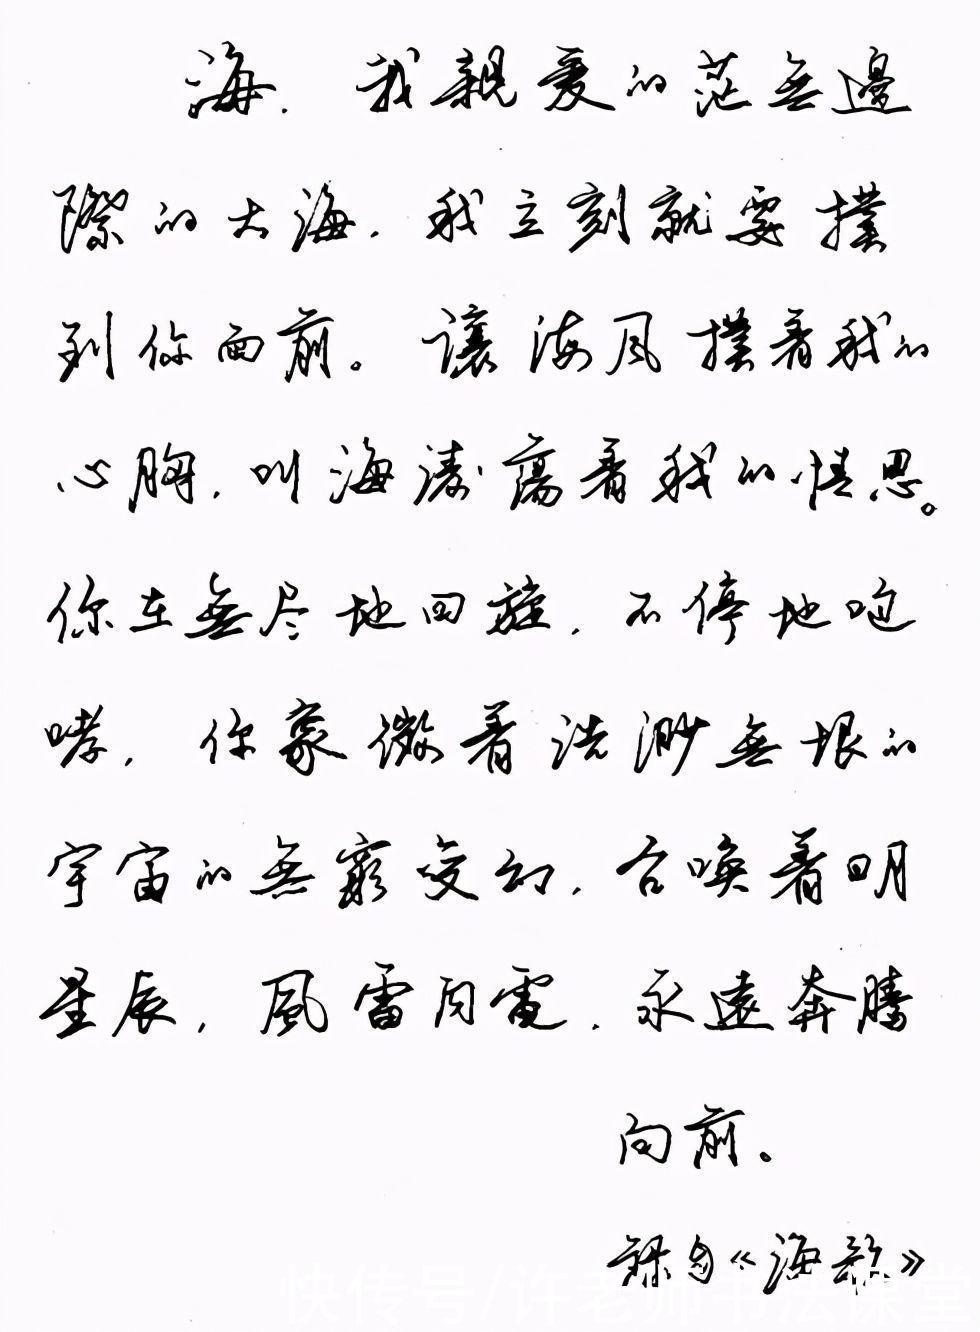 海，我親爱的茫無邊
際的大海，我立刻就要撲
到你面前。讓海风撲着我的
心胸，叫海涛蕩着我的情思。
你在無尽地回旋，不停地咆
哮，你象徵着浩渺無垠的
宇宙的無窮变幻，召唤着明
星辰，風雷闪電，永遠奔騰
向前。
録自《海歌》
快传号/许老师书法课堂